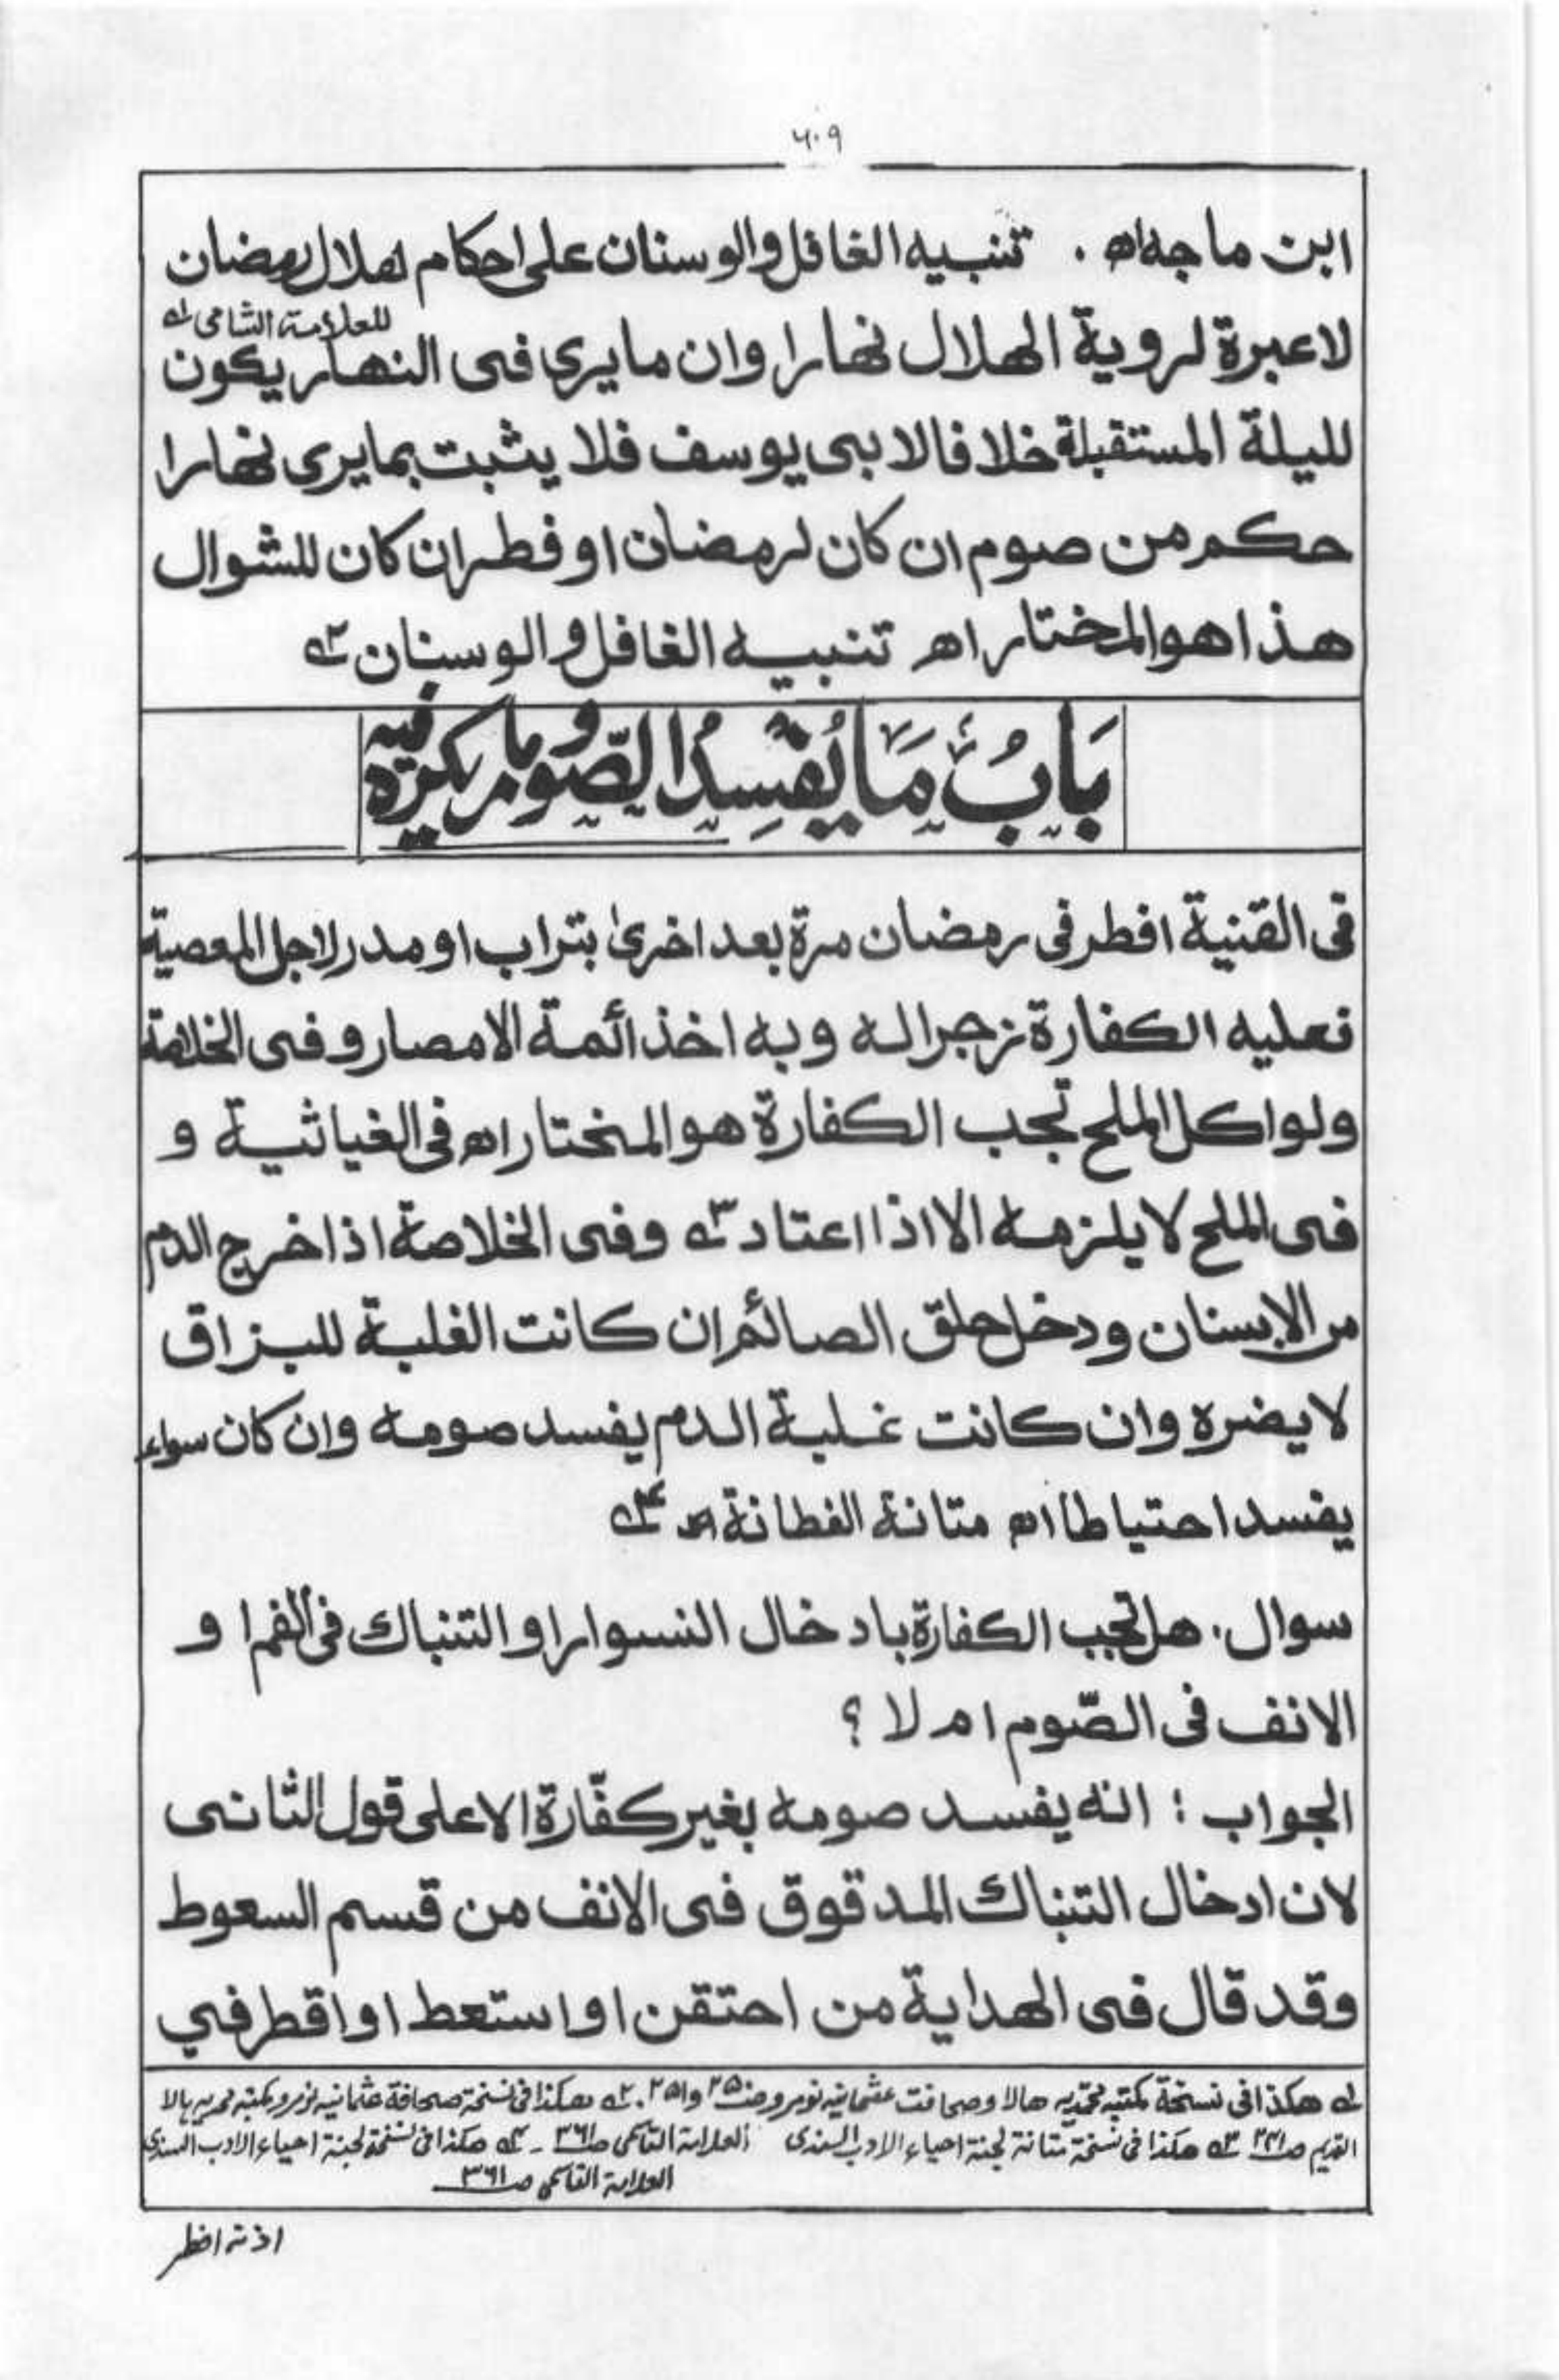 ۶۰۹
ابن ماجه اه . تنبيه الغافل والوسنان على احكام هلال رمضان
للعلامة الشامى له
لاعبرة لروية الهلال نهارا وان مايرى فى النهار يكون
لليلة المستقبلة خلافا لابى يوسف فلا يثبت بمايرى نهارا
حكم من صوم ان كان لرمضان او فطر ان كان للشوال
هذا هو المختار اه تنبيه الغافل والوسنان ٢ه
بَابُ مَا يُفْسِدُ الصّوم وما يكره فيه
فى القنية افطر فى رمضان مرة بعد اخرىٰ بتراب او مدر لاجل المعصية
فعليه الكفارة زجرا له وبه اخذ ائمة الامصار وفى الخلاصة
ولو اكل الملح تجب الكفارة هو المختار اه فى الغياثية و
فى الملح لا يلزمه الا اذا اعتاد ٣ه وفى الخلاصة اذا خرج الدم
من الاسنان ودخل حلق الصائم ان كانت الغلبة للبزاق
لا يضره وان كانت غلبة الدم يفسد صومه وان كان سواء
يفسد احتياطا اه متانة الفطانة اه ۴ه
سوال . هل تجب الكفارة بادخال النسوار او التنباك فى الفم او
الانف فى الصّوم ام لا ؟
الجواب : انه يفسد صومه بغير كفّارة الا على قول الثانى
لان ادخال التنباك المدقوق فى الانف من قسم السعوط
وقد قال فى الهداية من احتقن او استعط او اقطر في
له هكذا فى نسخة مكتبه محمّديه هالا وصحافت عثمانيه نورو ص ٢٥ وا٢٥ . ٢ه هكذا فى نسخة صحافة عثمانيه نورو مكتبه محمديه هالا
القديم ص ٢٣١ ٣ه هكذا فى نسخة متانة لجنة احياء الادب السندى العلامة القاسمى ص ٣٦١ ـ ۴ه هكذا فى نسخة لجنة احياء الادب السندى
العلامة القاسمى ص ٣٦١
اذنه افطر